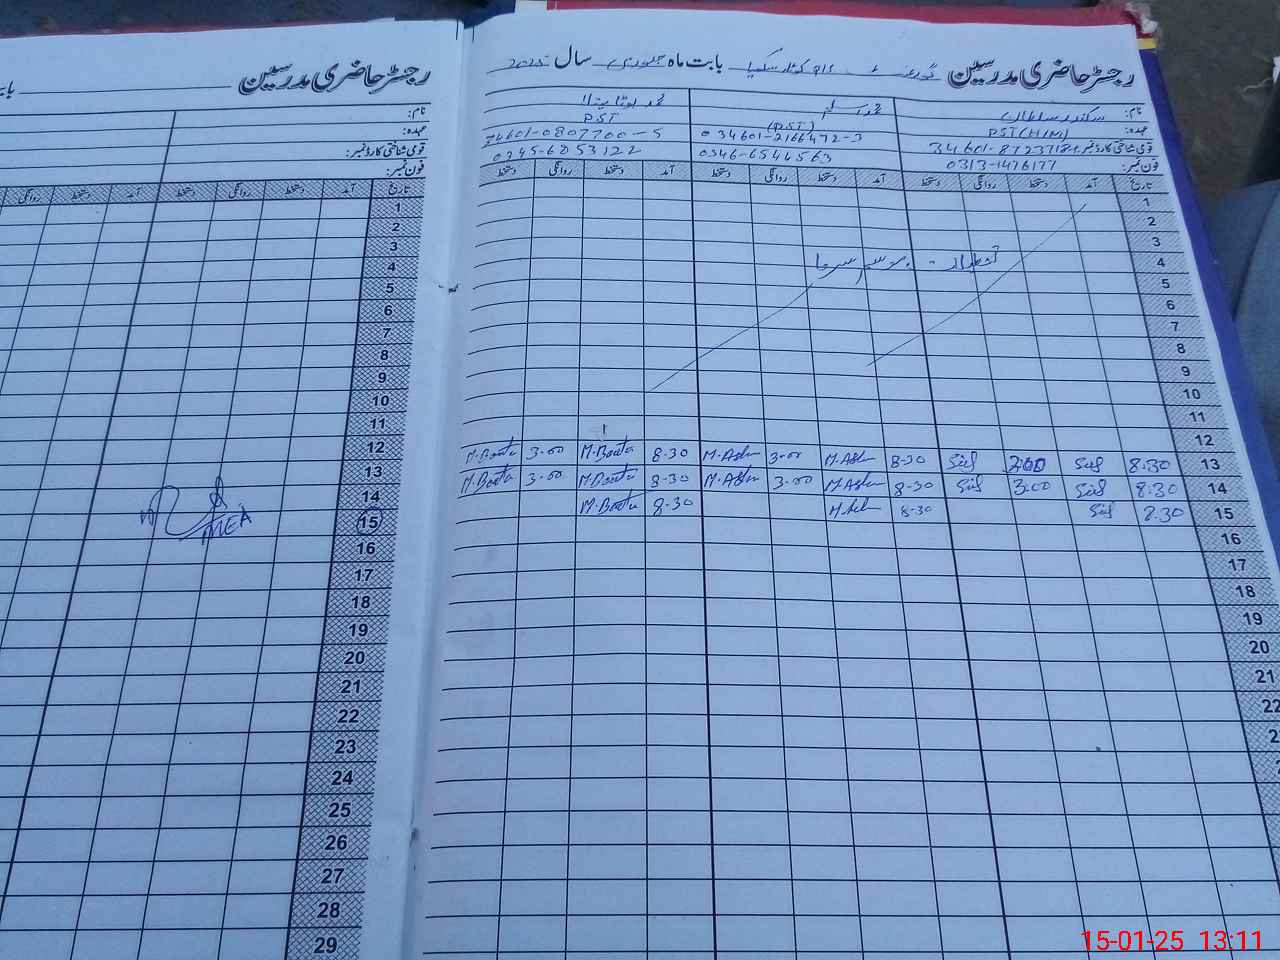 رجسٹر حاضری مدرسین بابت ماہ جنوری سال 2025
نام: سکندر سلطان محمد اسلم محمد بوٹا
عہدہ: PST(H/M) (PST) PST
قومی شناختی کارڈ نمبر: 34601-2166472-3 34601-0807700-5
فون نمبر: 0313-1476177 0346-6544563 0345-6853122
تاریخ آمد دستخط روانگی دستخط آمد دستخط روانگی دستخط آمد دستخط روانگی دستخط
1
2
3
4
5
6
7
8
9
10
11
12
13 8.30 3.00 8.30 M.Aslm 3.00 M.Aslm 8.30 M.Boota 3.00 M.Boota
14 8.30 3.00 8.30 M.Aslm 3.00 M.Aslm 8.30 M.Boota 3.00 M.Boota
15 8.30 8.30 M.Aslm 8.30 M.Boota
16
17
18
19
20
21
22
رجسٹر حاضری مدرسین
نام:
عہدہ:
قومی شناختی کارڈ نمبر:
فون نمبر:
تاریخ آمد دستخط روانگی دستخط آمد دستخط روانگی
1
2
3
4
5
6
7
8
9
10
11
12
13
14
15 MEA
16
17
18
19
20
21
22
23
24
25
26
27
28
29
15-01-25 13:11